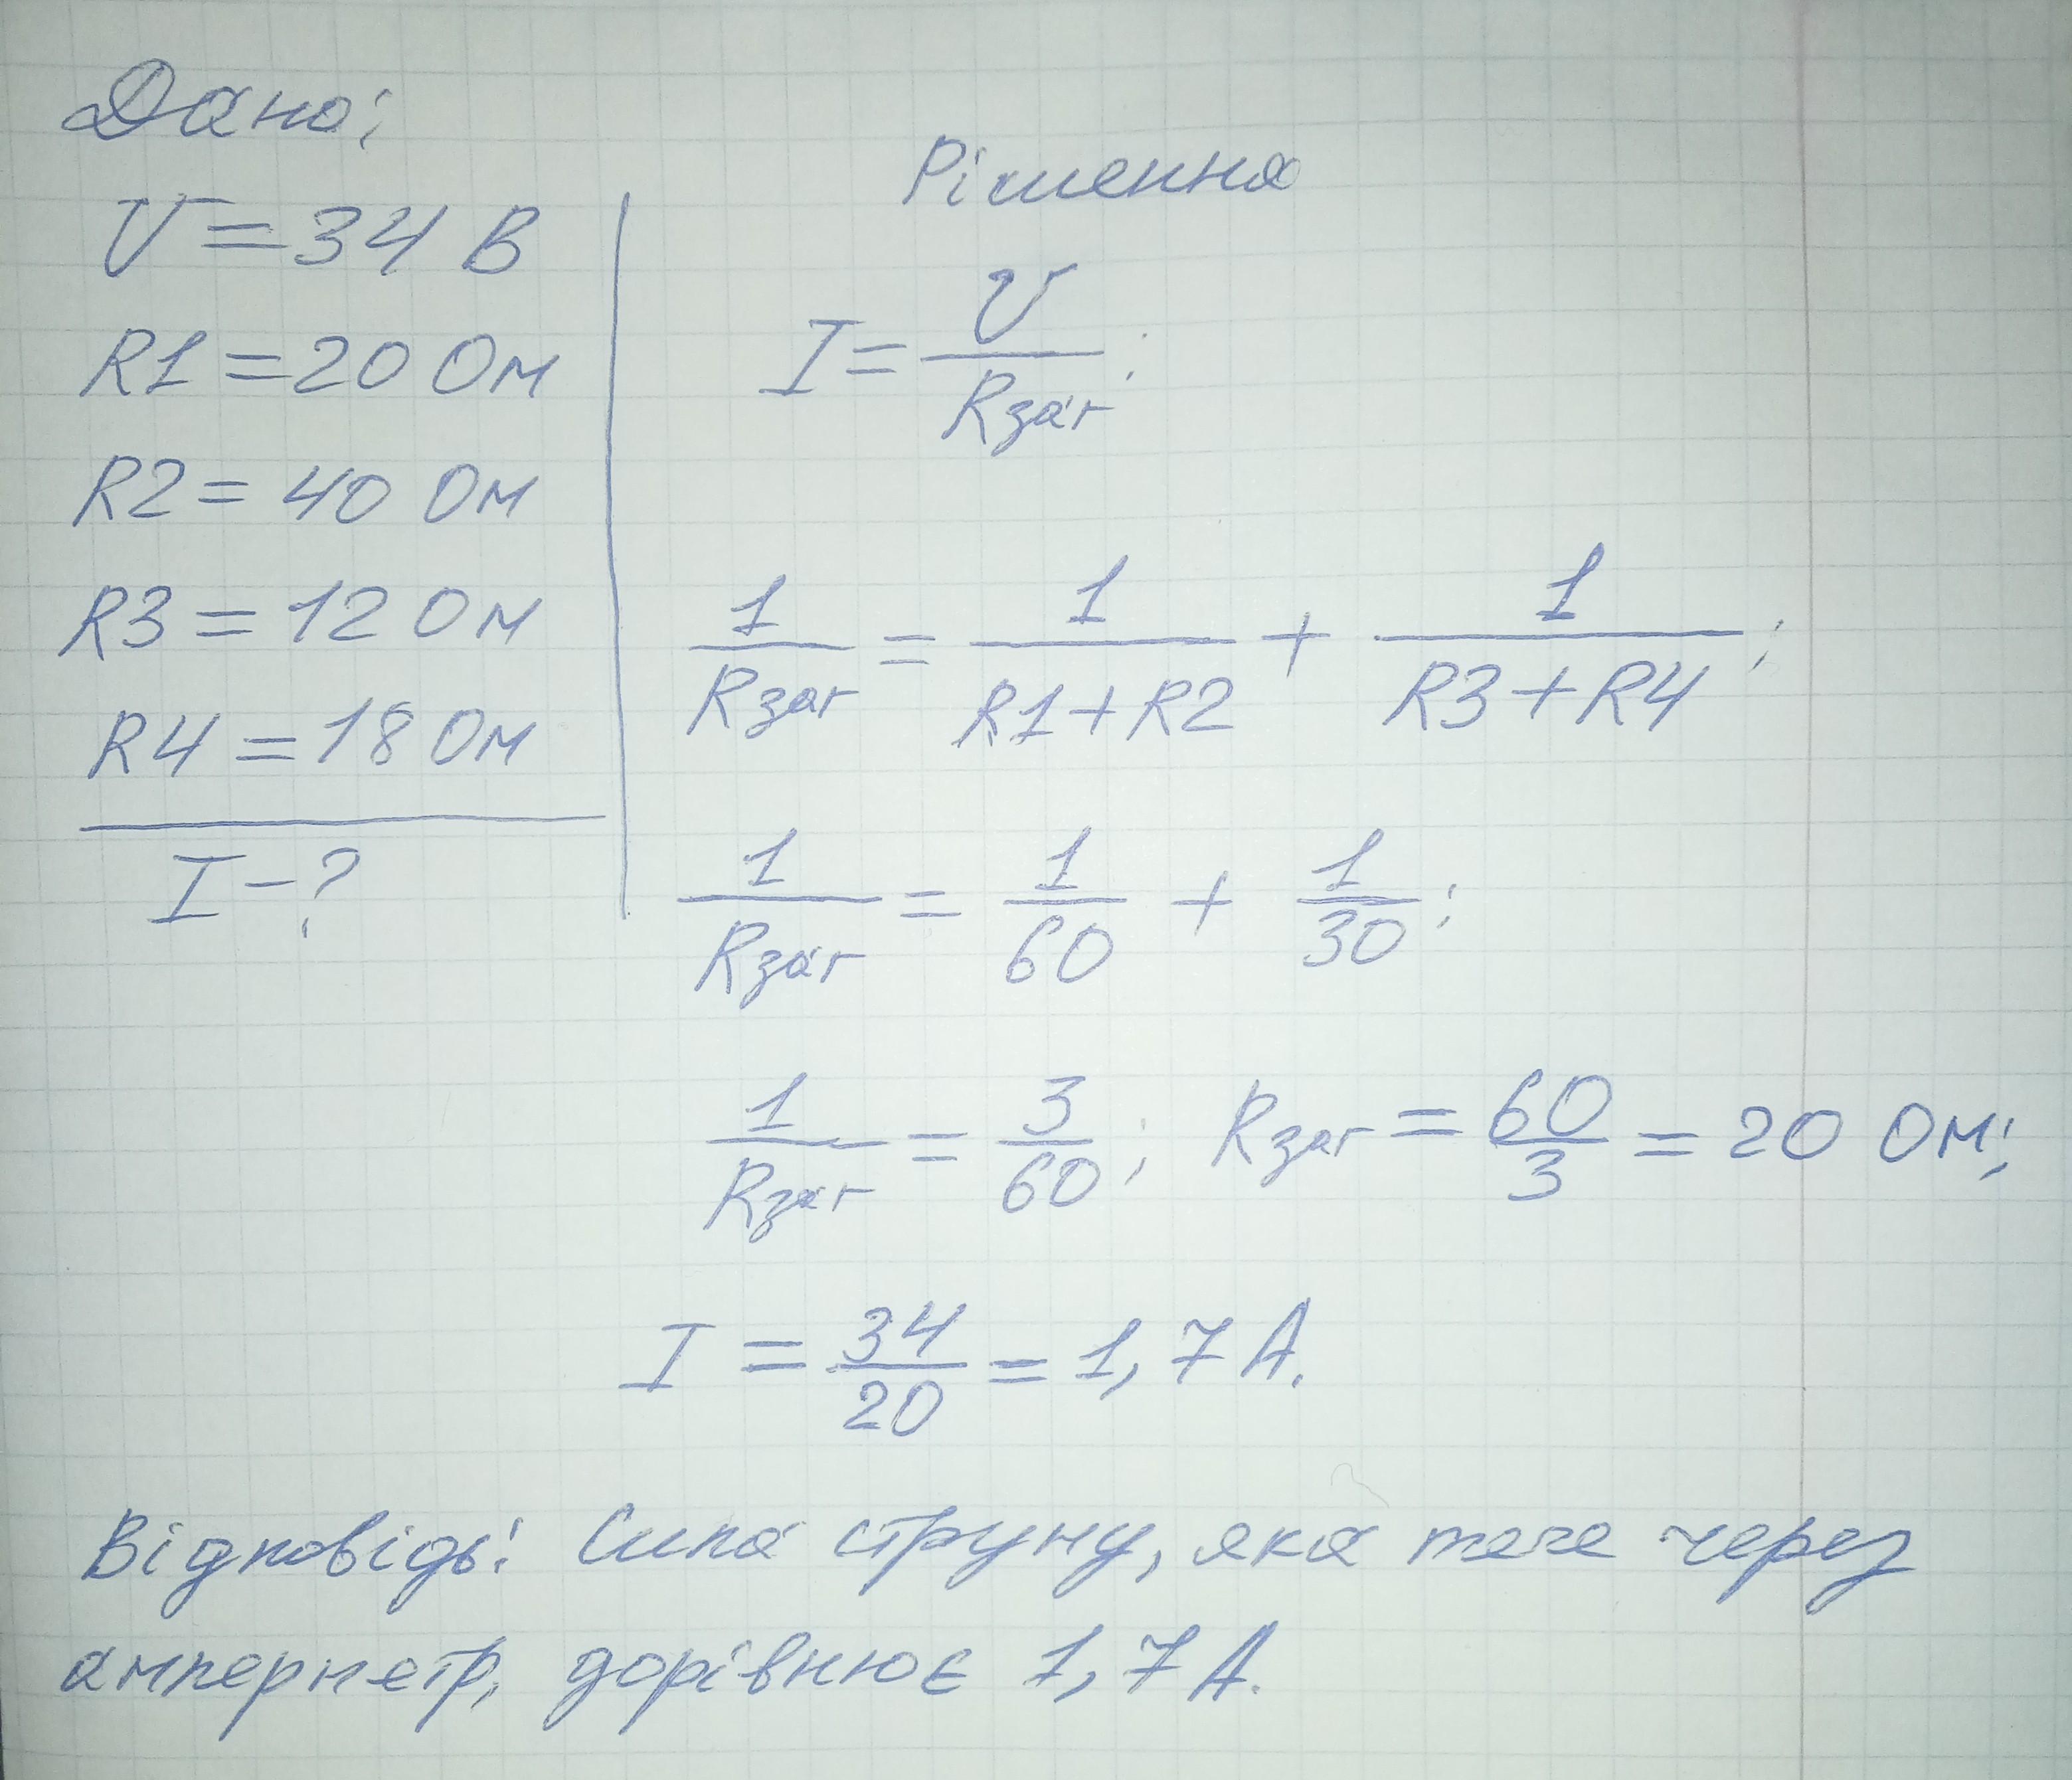 Дано:
U = 34 В
R1 = 20 Ом
R2 = 40 Ом
R3 = 12 Ом
R4 = 18 Ом
I - ?
Рішення
I = U / Rзаг ;
1 / Rзаг = 1 / (R1 + R2) + 1 / (R3 + R4) ;
1 / Rзаг = 1 / 60 + 1 / 30 ;
1 / Rзаг = 3 / 60 ; Rзаг = 60 / 3 = 20 Ом;
I = 34 / 20 = 1,7 А.
Відповідь: Сила струму, яка тече через
амперметр, дорівнює 1,7 А.